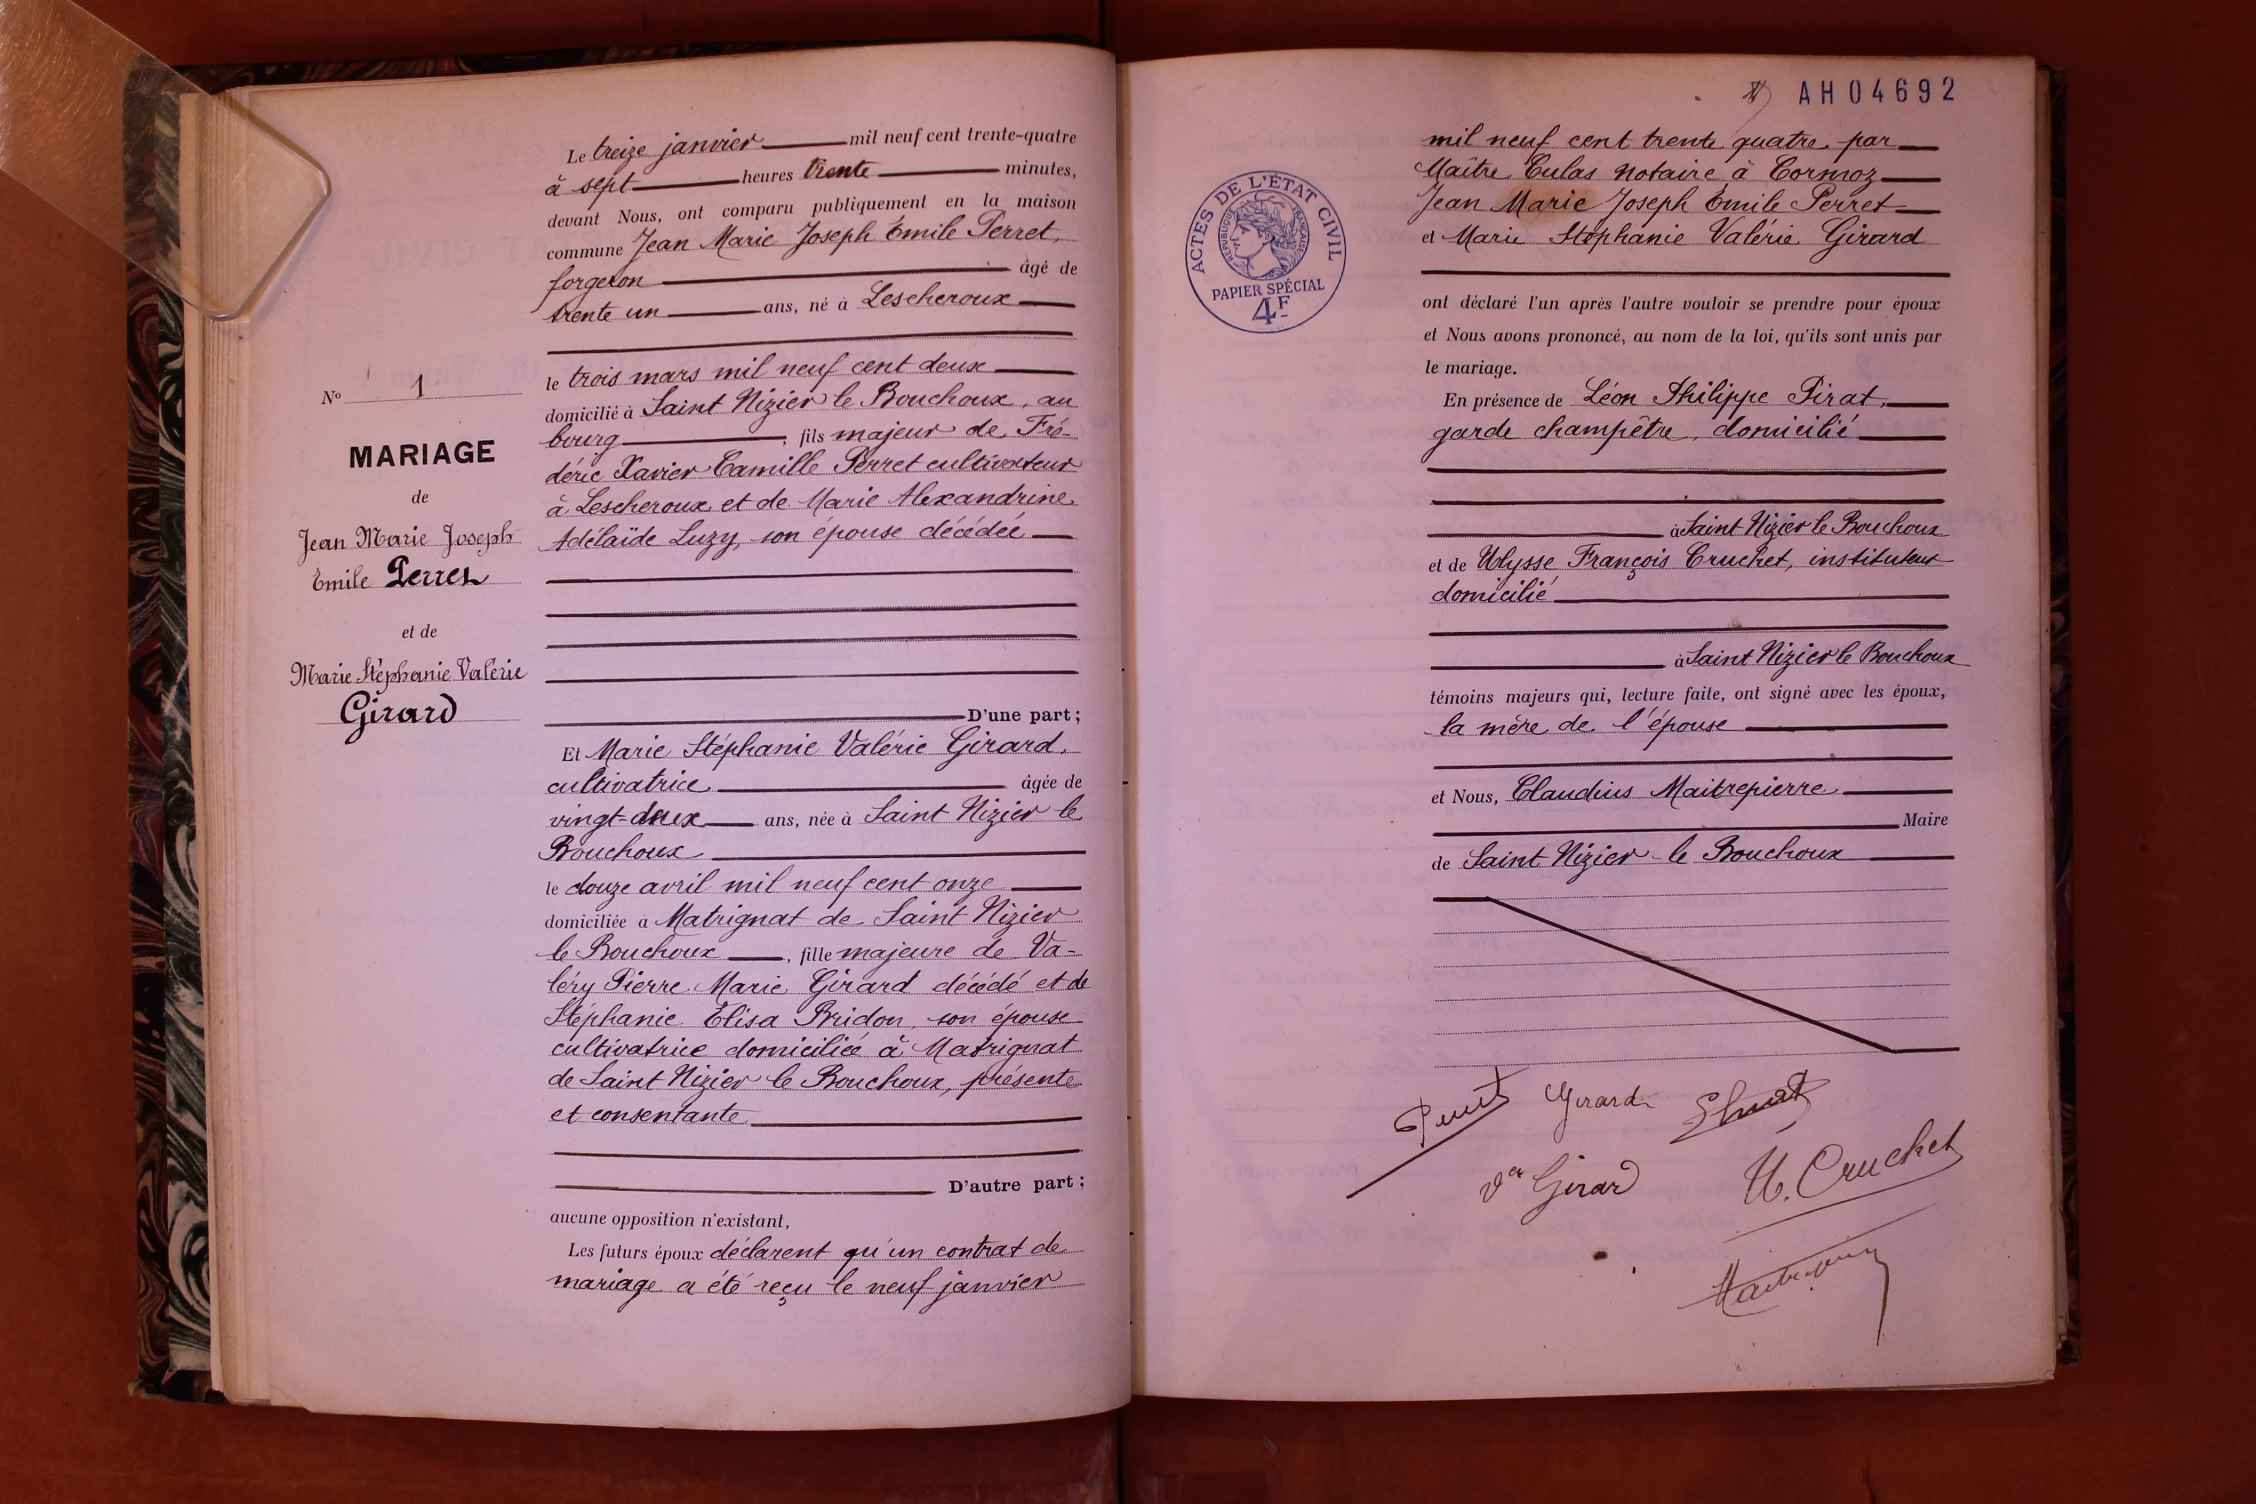 Nº 1
MARIAGE
de
Jean Marie Joseph
Emile Perret
et de
Marie Stéphanie Valérie
Girard
Le treize janvier mil neuf cent trente-quatre
à sept heures trente minutes,
devant Nous, ont comparu publiquement en la maison
commune Jean Marie Joseph Émile Perret,
forgeron âgé de
trente un ans, né à Lescheroux
le trois mars mil neuf cent deux
domicilié à Saint Nizier le Bouchoux, au
bourg , fils majeur de Fré-
déric Xavier Camille Perret cultivateur
à Lescheroux et de Marie Alexandrine
Adélaïde Luzy, son épouse décédée
D'une part ;
Et Marie Stéphanie Valérie Girard,
cultivatrice âgée de
vingt-deux ans, née à Saint Nizier le
Bouchoux
le douze avril mil neuf cent onze
domiciliée à Matrignat de Saint Nizier
le Bouchoux , fille majeure de Va-
léry Pierre Marie Girard décédé et de
Stéphanie Élisa Bridon, son épouse
cultivatrice domiciliée à Matrignat
de Saint Nizier le Bouchoux, présente
et consentante
D'autre part ;
aucune opposition n'existant,
Les futurs époux déclarent qu'un contrat de
mariage a été reçu le neuf janvier
AH04692
ACTES DE L'ÉTAT CIVIL
RÉPUBLIQUE FRANÇAISE
PAPIER SPÉCIAL
4F
mil neuf cent trente quatre par
Maître Culas notaire à Cormoz
Jean Marie Joseph Émile Perret
et Marie Stéphanie Valérie Girard
ont déclaré l'un après l'autre vouloir se prendre pour époux
et Nous avons prononcé, au nom de la loi, qu'ils sont unis par
le mariage.
En présence de Léon Philippe Pirat,
garde champêtre, domicilié
à Saint Nizier le Bouchoux
et de Ulysse François Cruchet, instituteur
domicilié
à Saint Nizier le Bouchoux
témoins majeurs qui, lecture faite, ont signé avec les époux,
la mère de l'épouse
et Nous, Claudius Maitrepierre
Maire
de Saint Nizier le Bouchoux
Perret Girard
Vve Girard U. Cruchet
Maitrepierre